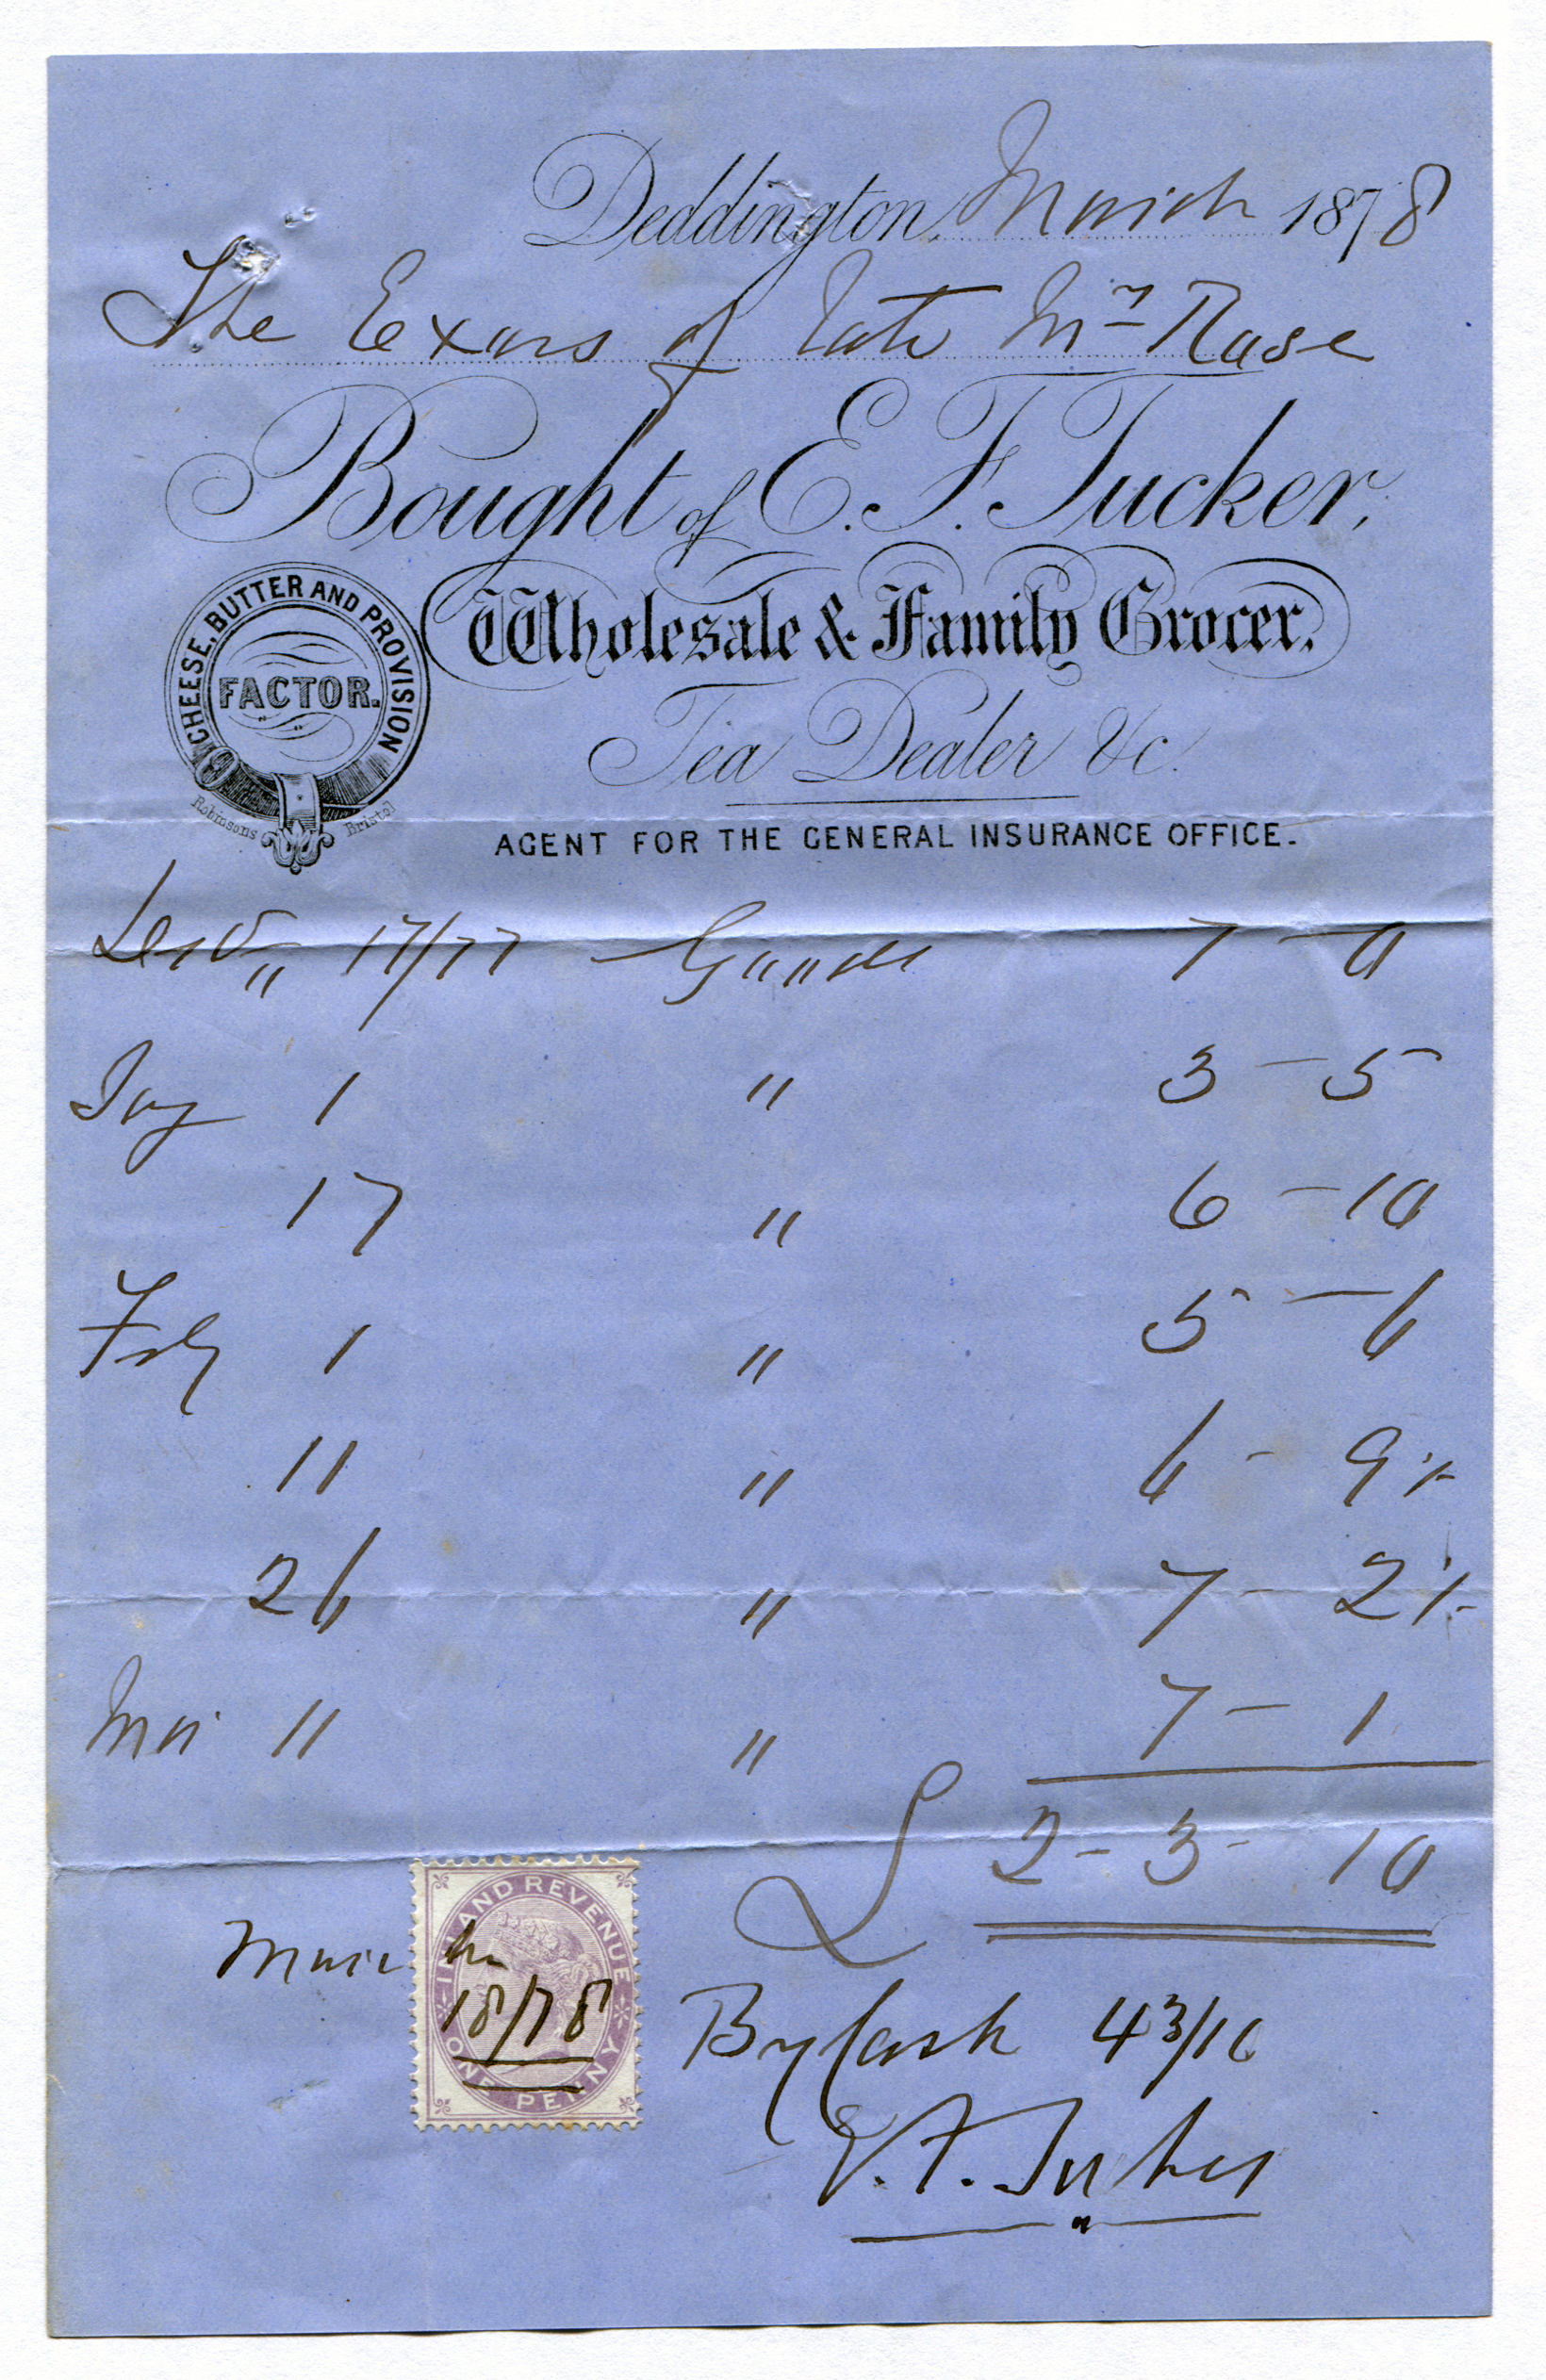 Deddington, March 1878
The Exors of late Mr Rose
Bought of E. F. Tucker,
Wholesale & Family Grocer.
Tea Dealer &c.
AGENT FOR THE GENERAL INSURANCE OFFICE.
CHEESE, BUTTER AND PROVISION
FACTOR.
Robinsons Bristol
Decr 17/77 Goods 7 - 0
Jay 1 " 3 - 5
17 " 6 - 10
Feby 1 " 5 - 6
11 " 6 - 9½
26 " 7 - 2½
Mar 11 " 7 - 1
£ 2 - 3 - 10
March
18/78
INLAND REVENUE
ONE PENNY
By Cash 43/10
E. F. Tucker